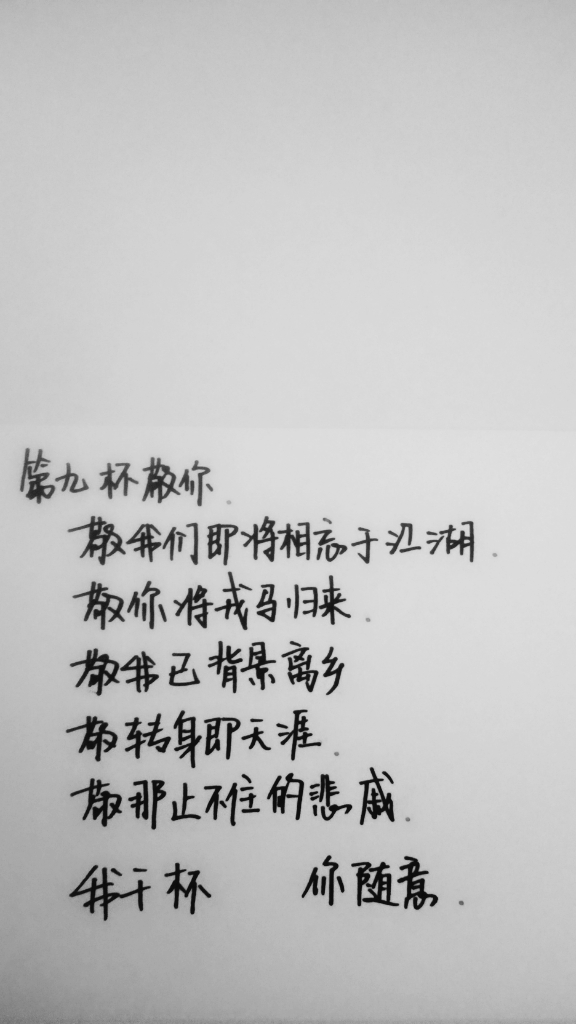 第九杯敬你.
敬我们即将相忘于江湖.
敬你将戎马归来.
敬我已背景离乡
敬转身即天涯.
敬那止不住的悲戚.
我干杯 你随意.